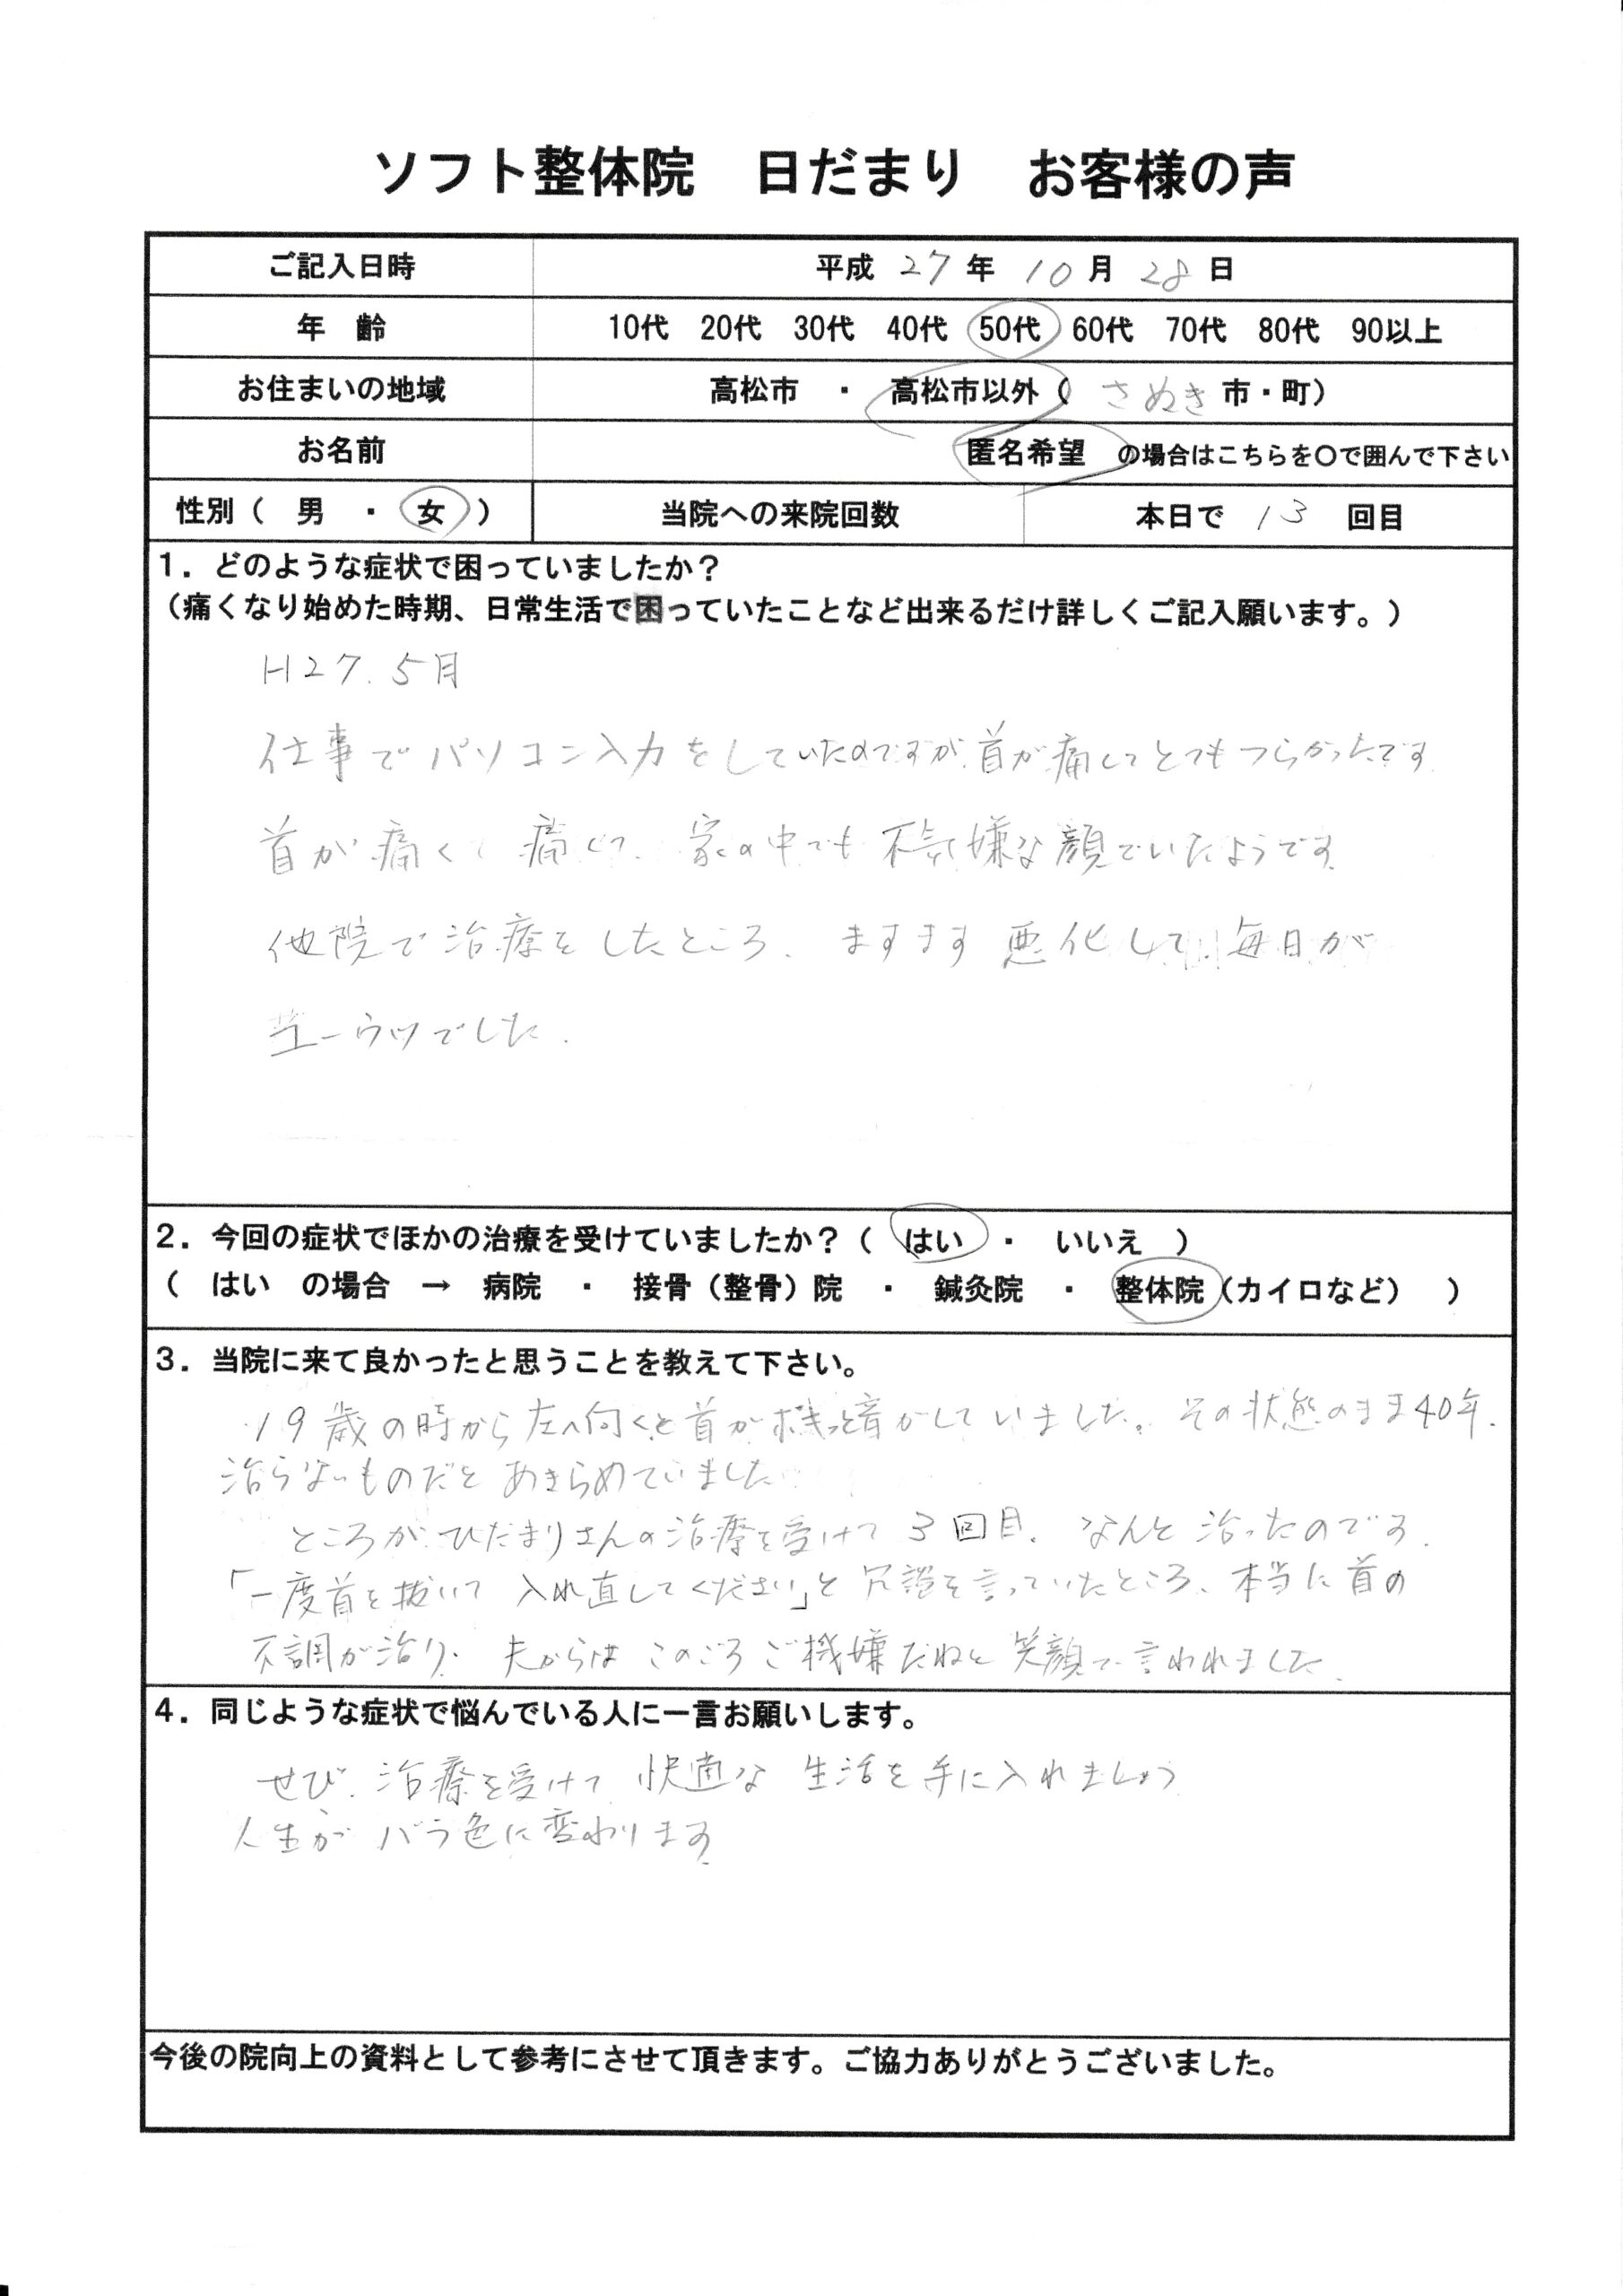 ソフト整体院 日だまり お客様の声
ご記入日時 平成 27 年 10 月 28 日
年 齢 10代 20代 30代 40代 50代 60代 70代 80代 90以上
お住まいの地域 高松市 ・ 高松市以外 ( さぬき 市・町)
お名前 匿名希望 の場合はこちらを○で囲んで下さい
性別 ( 男 ・ 女 ) 当院への来院回数 本日で 13 回目
1.どのような症状で困っていましたか?
(痛くなり始めた時期、日常生活で困っていたことなど出来るだけ詳しくご記入願います。)
H27.5月
仕事でパソコン入力をしていたのですが首が痛くてとてもつらかったです
首が痛くて痛くて、家の中でも不気嫌な顔でいたようです
他院で治療をしたところ、ますます悪化して毎日が
ユーウツでした.
2.今回の症状でほかの治療を受けていましたか?( はい ・ いいえ )
( はい の場合 → 病院 ・ 接骨(整骨)院 ・ 鍼灸院 ・ 整体院(カイロなど) )
3.当院に来て良かったと思うことを教えて下さい。
19歳の時から左へ向くと首がポキっと音がしていました。その状態のまま40年.
治らないものだとあきらめていました
ところが ひだまりさんの治療を受けて 3回目、なんと治ったのです.
「一度首を抜いて 入れ直してください」と冗談を言っていたところ、本当に首の
不調が治り、夫からは このごろご機嫌だねと笑顔で言われました.
4.同じような症状で悩んでいる人に一言お願いします。
ぜひ 治療を受けて 快適な 生活を手に入れましょう
人生が バラ色に変わります
今後の院向上の資料として参考にさせて頂きます。ご協力ありがとうございました。